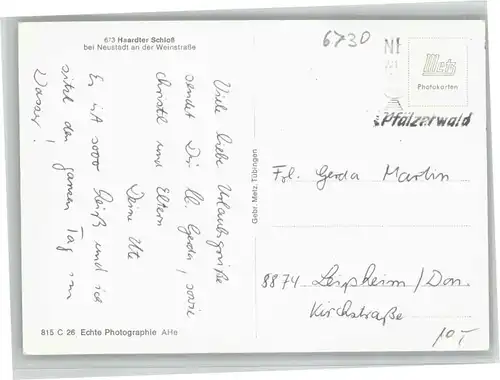 673 Haardter Schloß
bei Neustadt an der Weinstraße
6730
Metz
Photokarten
Pfälzerwald
Viele liebe Urlaubsgrüße
sendet Dir, lb. Gerda, sowie
Christl und Eltern
Deine Ute
Es ist sooo heiß und ich
sitze den ganzen Tag im
Wasser!
Gebr. Metz, Tübingen
Frl. Gerda Martin
8874 Leipheim/Don.
Kirchstraße
10,-
815 C 26 Echte Photographie AHe